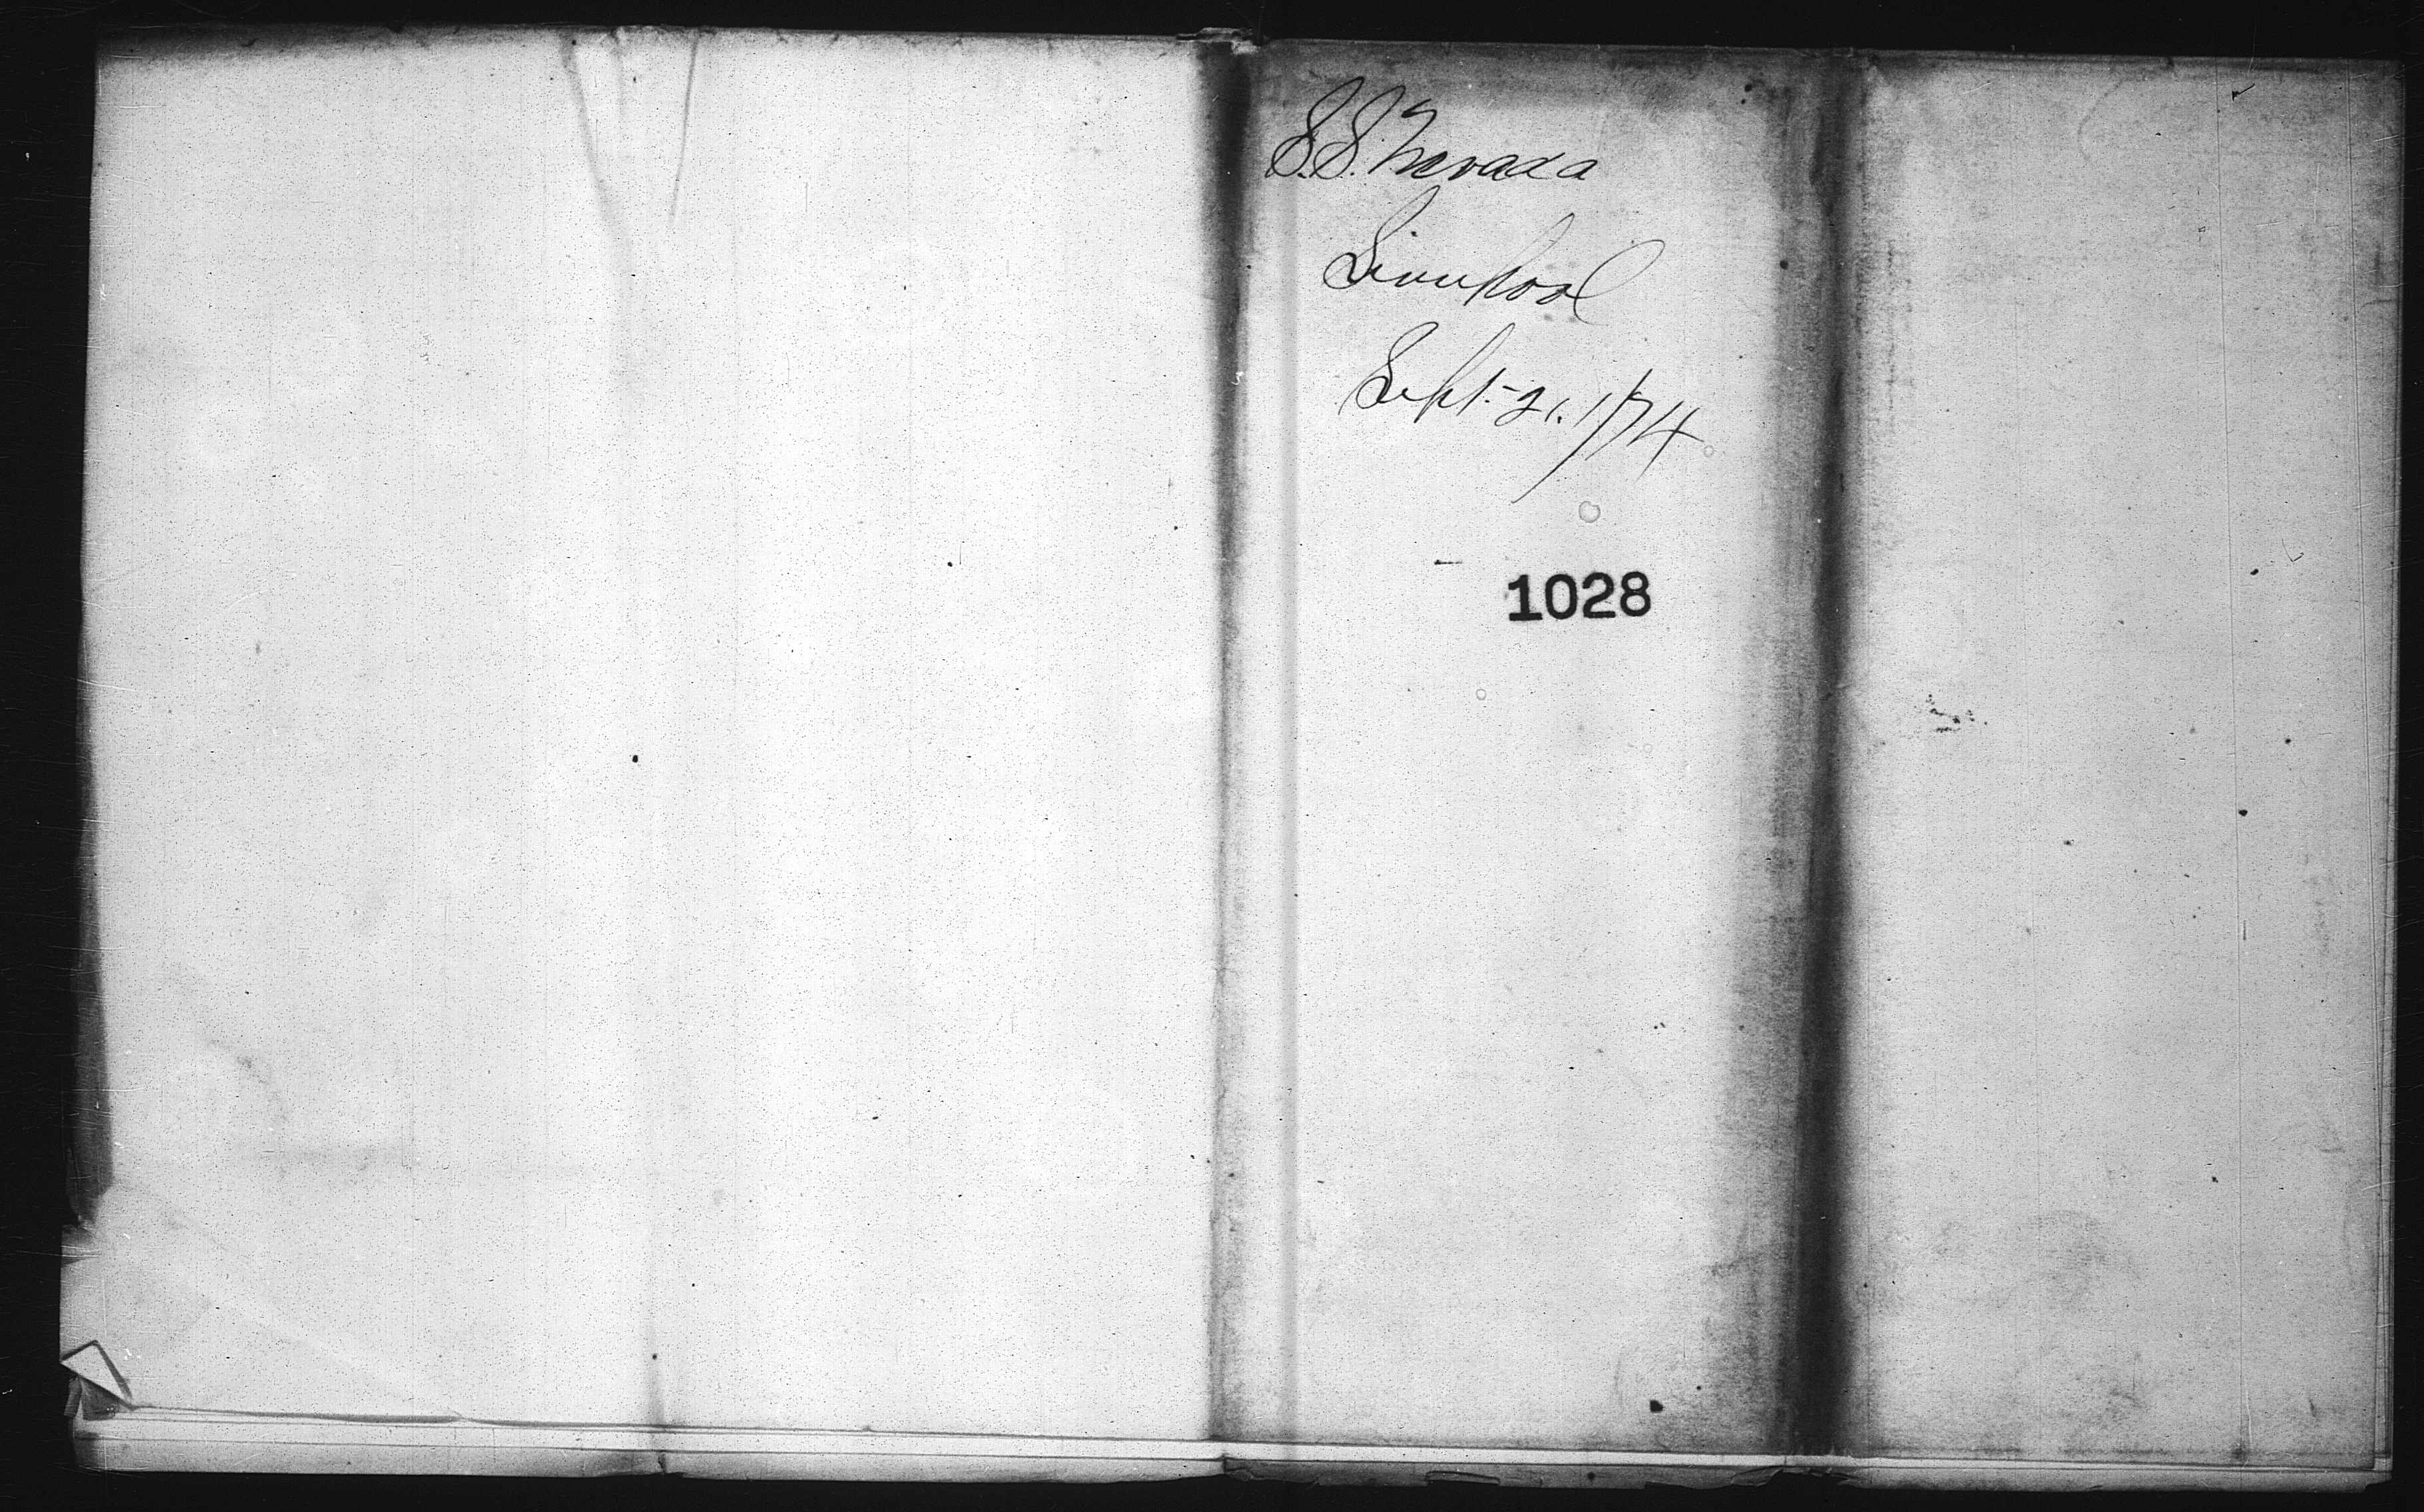 S.S. Nevada
Liverpool
Sept. 21. 1874
1028